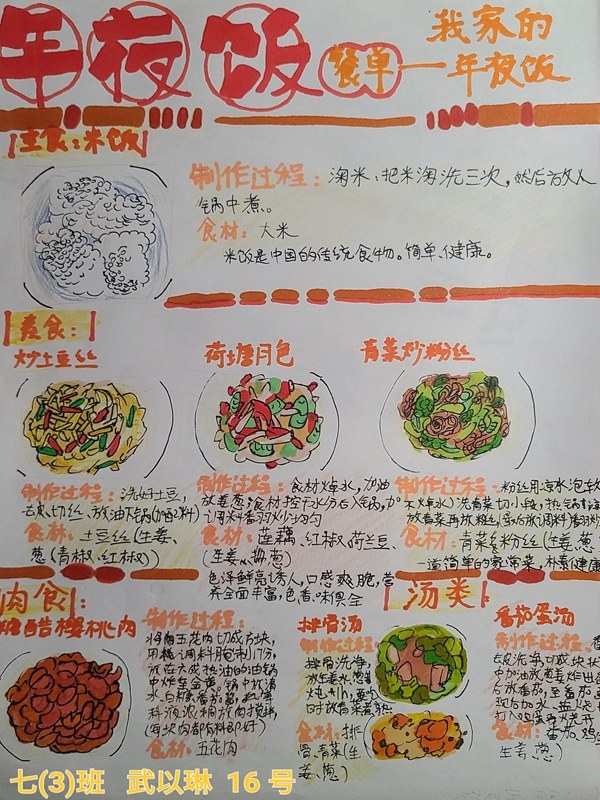 年夜饭
餐单——我家的
年夜饭
主食：米饭
制作过程：淘米：把米淘洗三次，然后放入
锅中煮。
食材：大米
米饭是中国的传统食物。简单、健康。
素食：
炒土豆丝
制作过程：洗好土豆，
去皮切丝，放油下锅(加配料)
食材：土豆丝(生姜、
葱(青椒、红椒))
荷塘月色
制作过程：食材焯水，加油
放姜葱；食材控干水分后入锅，加
调料翻炒均匀
食材：莲藕、红椒、荷兰豆、
(生姜、葱)
色泽鲜亮诱人，口感爽脆，营
养全面丰富，色香味俱全
青菜炒粉丝
制作过程：粉丝用凉水泡软
洗青菜切小段，热锅
放青菜再放粉丝，放调料翻炒
食材：青菜、粉丝(生姜、葱
一道简单的家常菜，朴素健康
肉食：
糖醋樱桃肉
制作过程：
将五花肉切成方块，
用调料腌制1小时，
放在大成热油的油锅
中炸至金黄。锅中放清
水、白糖、番茄酱，把调
料液浓稠放肉搅拌，
食材：五花肉
汤类
排骨汤
制作过程：
排骨洗净，
放生姜水、葱姜
炖1h，
时放青菜煮熟
食材：排
骨、青菜(生
姜、葱)
番茄蛋汤
制作过程：
去皮洗净，切成块状
中加油放葱姜炸出香
后放番茄，至番茄
现后加水，盖
打入鸡蛋再烧开
食材：番茄、鸡
生姜、葱)
七(3)班 武以琳 16号